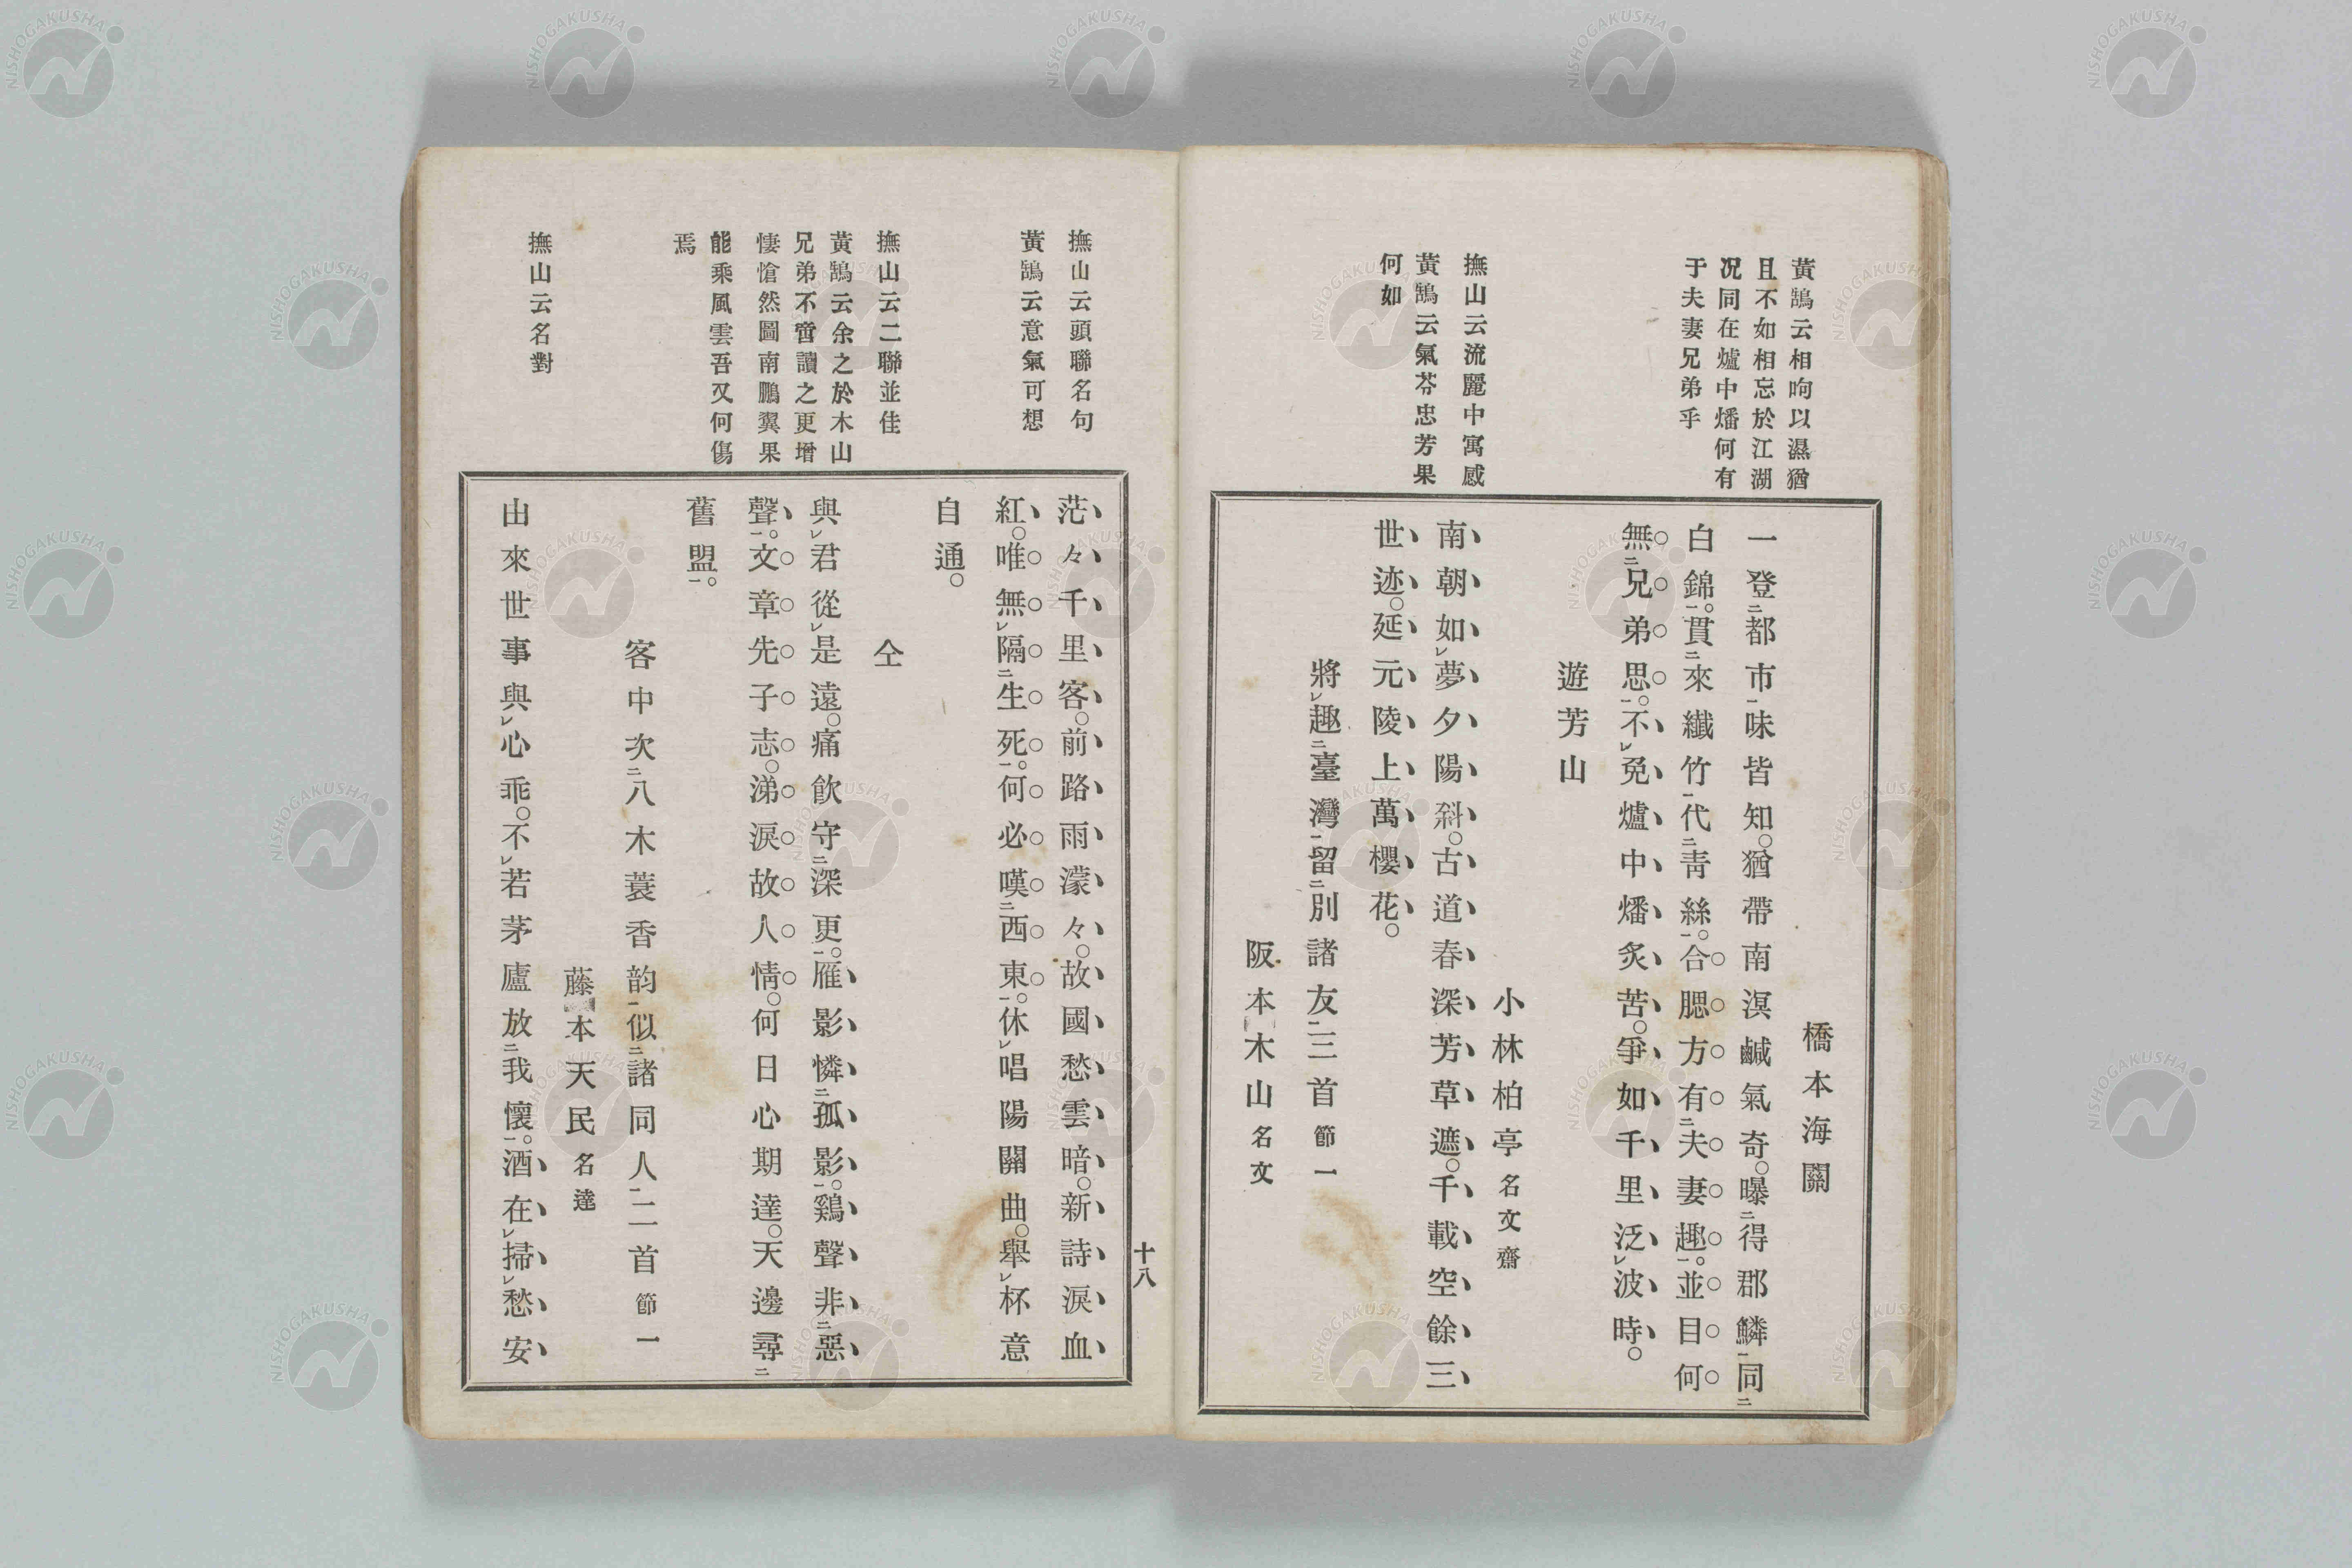 黃鵠云相呴以濕猶
且不如相忘於江湖
況同在爐中燔何有
于夫妻兄弟乎
撫山云流麗中寓感
黃鵠云氣芬忠芳果
何如
橋本海關
一登二都市一味皆知。猶帶南溟鹹氣奇。曝二得郡鱗一同二
白錦一。貫二來纖竹一代二靑絲一。合腮方有二夫妻趣一。並目何
無二兄弟思一。不レ免爐中燔炙苦。爭如千里泛レ波時。
遊芳山
小林柏亭名文齋
南朝如レ夢夕陽斜。古道春深芳草遮。千載空餘三
世迹。延元陵上萬櫻花。
將レ趣二臺灣一留二別諸友一三首節一
阪本木山名文
撫山云頭聯名句
黃鵠云意氣可想
撫山云二聯並佳
黃鵠云余之於木山
兄弟不啻讀之更增
悽愴然圖南鵬翼果
能乘風雲吾又何傷
焉
撫山云名對
十八
茫々千里客。前路雨濛々。故國愁雲暗。新詩淚血
紅。唯無レ隔二生死一。何必嘆二西東一。休レ唱陽關曲。舉レ杯意
自通。
仝
與レ君從レ是遠。痛飮守二深更一。雁影憐二孤影一。鷄聲非二惡
聲一。文章先子志。涕淚故人情。何日心期達。天邊尋二
舊盟一。
客中次二八木蓑香韵一似二諸同人一二首節一
藤本天民名達
由來世事與レ心乖。不レ若茅廬放二我懷一。酒在レ掃レ愁安